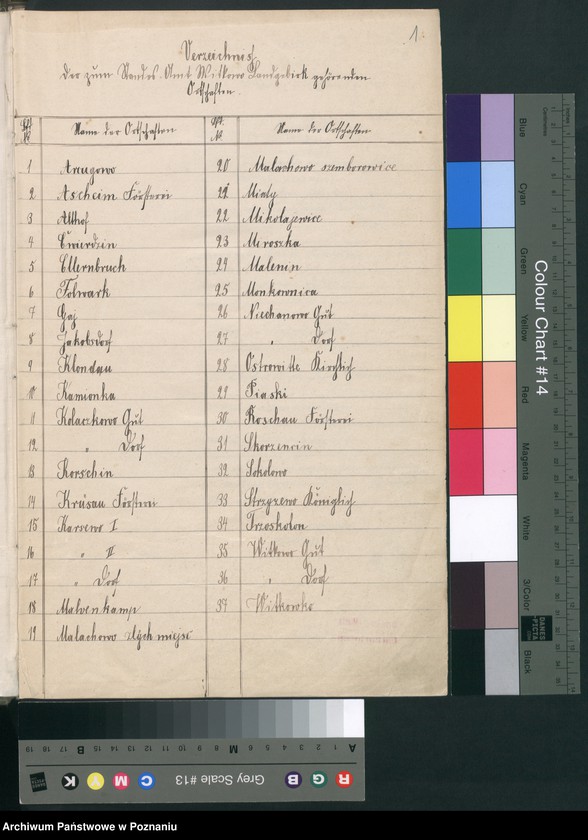 1.
Verzeichnis
der zum Standes-Amt Witkowo Landbezirk gehörenden
Ortschaften.
Lfd. № Name der Ortschaften
1 Arugowo
2 Ascheim Försterei
3 Althof
4 Cwierdzin
5 Ellernbruch
6 Folwark
7 Gaj
8 Jakobsdorf
9 Klondau
10 Kamionka
11 Kolaczkowo Gut
12 " Dorf
13 Korschin
14 Krusau Försterei
15 Karsewo I
16 " II
17 " Dorf
18 Malvenkamp
19 Malachowo złych miejsc
Lfd. № Name der Ortschaften
20 Malachowo szemborowice
21 Mielzy
22 Mikolajewice
23 Mroszka
24 Malenin
25 Monkownica
26 Niechanowo Gut
27 " Dorf
28 Ostrowitte Kirchlich
29 Piaski
30 Roschau Försterei
31 Skorzencin
32 Sokolowo
33 Strzyzewo Königlich
34 Trzoskolon
35 Witkowo Gut
36 " Dorf
37 Witkowko
Colour Chart #14
Blue
Cyan
Green
Yellow
Red
Magenta
White
3/Color
Black
DANES
PICTA
Centimetres
Inches
Grey Scale #13
R G B
C M Y K
A 1 2 3 4 5 6 M 8 9 10 11 12 13 14 15 B 17 18 19
Archiwum Państwowe w Poznaniu